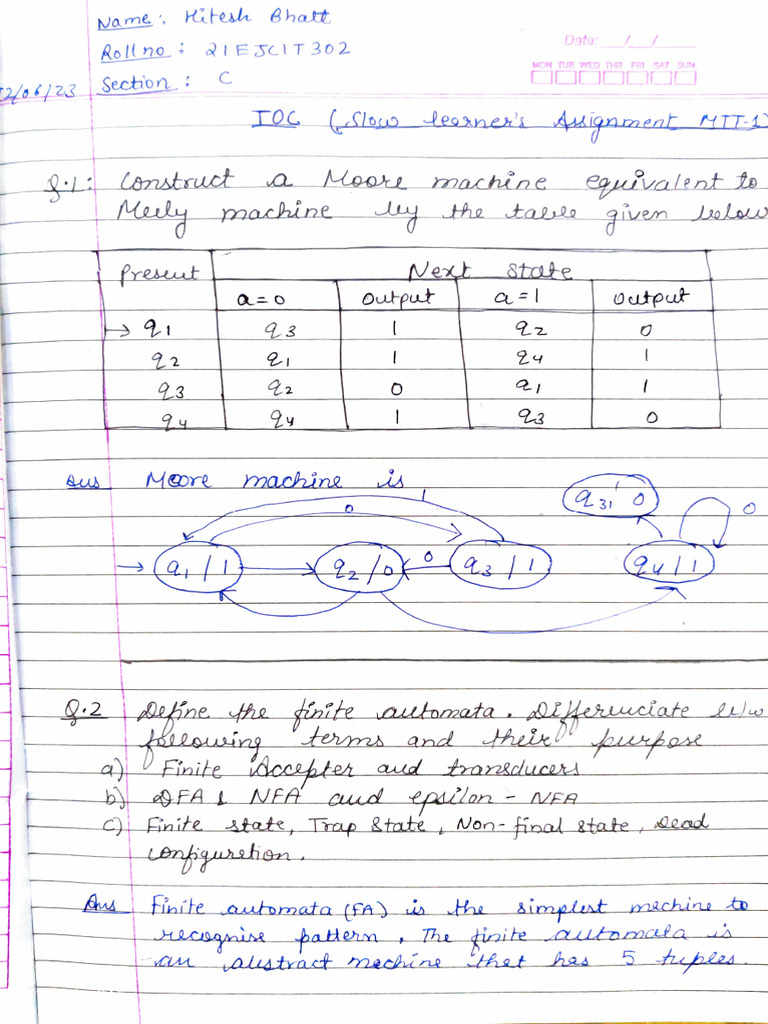 Name: Hitesh Bhatt
Roll no: 21EJCIT302
Section: C
Date: __/__/__
MON TUE WED THR FRI SAT SUN
2/06/23
TOC (Slow learner's Assignment MTT-1)
Q.1: Construct a Moore machine equivalent to
Meely machine by the table given below
Present Next state
a=0 Output a=1 Output
→ q1 q3 1 q2 0
q2 q1 1 q4 1
q3 q2 0 q1 1
q4 q4 1 q3 0
Ans Moore machine is
1
0
q31 0
0
q1/1 q2/0 0 q3/1 q4/1
Q.2 Define the finite automata. Differenciate b/w
following terms and their purpose
a) Finite Accepter and transducers
b) DFA & NFA and epsilon - NFA
c) Finite state, Trap State, Non-final state, Dead
configuretion.
Ans Finite automata (FA) is the simplest machine to
recognise pattern. The finite automata is
an abstract machine that has 5 tuples.